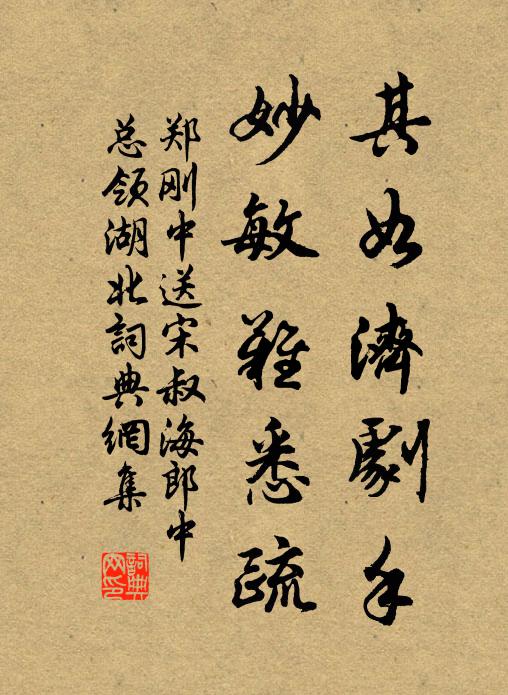 其如濟劇手
妙敏難悉疏
郑刚中送宋叔海郎中
总领湖北詞典網集
詞典網印